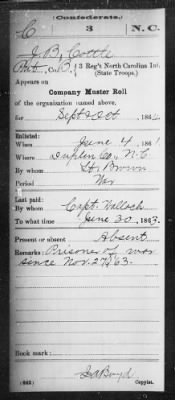 (Confederate.)
C 3 N.C.
J B Cottle
Pvt., Co. B, 3 Reg't North Carolina Inf.
(State Troops.)
Appears on
Company Muster Roll
of the organization named above,
for Sept & Oct, 1864.
Enlisted:
When June 4, 1861
Where Duplin Co., N.C
By whom Lt. Brown
Period War
Last paid:
By whom Capt.
To what time June 30, 1863.
Present or absent Absent
Remarks: Prisoner of war
since Nov. 27/63.
Book mark:
(642) Copyist.